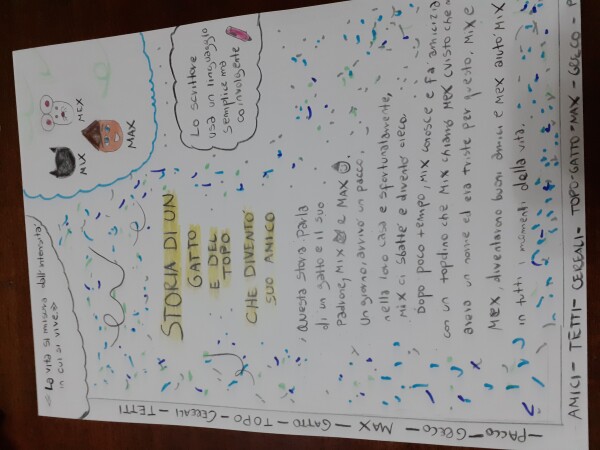 « La vita si misura dall'intensità
in cui si vive.»
MIX
MEX
MAX
Lo scrittore
usa un linguaggio
semplice ma
coinvolgente
STORIA DI UN
GATTO
E DEL
TOPO
CHE DIVENTÒ
SUO AMICO
Questa storia parla
di un gatto e il suo
padrone, Mix e MAX.
Un giorno, arrivò un pacco
nella loro casa e sfortunatamente,
Mix ci sbatté e diventò cieco.
Dopo poco tempo, Mix conosce e fa amicizia
con un topolino che Mix chiamò MEX (visto che
aveva un nome ed era triste per questo. Mix e
MEX, diventarono buoni amici e MEX aiutò MIX
in tutti i momenti della vita.
PACCO - GECCO - MAX - GATTO - TOPO - CEREALI - TETTI
AMICI - TETTI - CEREALI - TOPO - GATTO - MAX - GECCO -